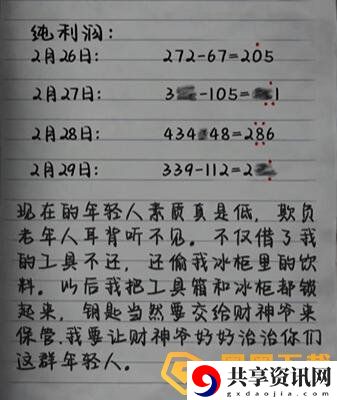 纯利润:
2月26日: 272-67=205
2月27日: 3 -105= 1
2月28日: 434 48=286
2月29日: 339-112=2
现在的年轻人素质真是低,欺负
老年人耳背听不见。不仅借了我
的工具不还,还偷我冰柜里的饮
料。此后我把工具箱和冰柜都锁
起来,钥匙当然要交给财神爷来
保管,我要让财神爷好好治治你们
这群年轻人。
共享资讯网
www.gxdaojia.com